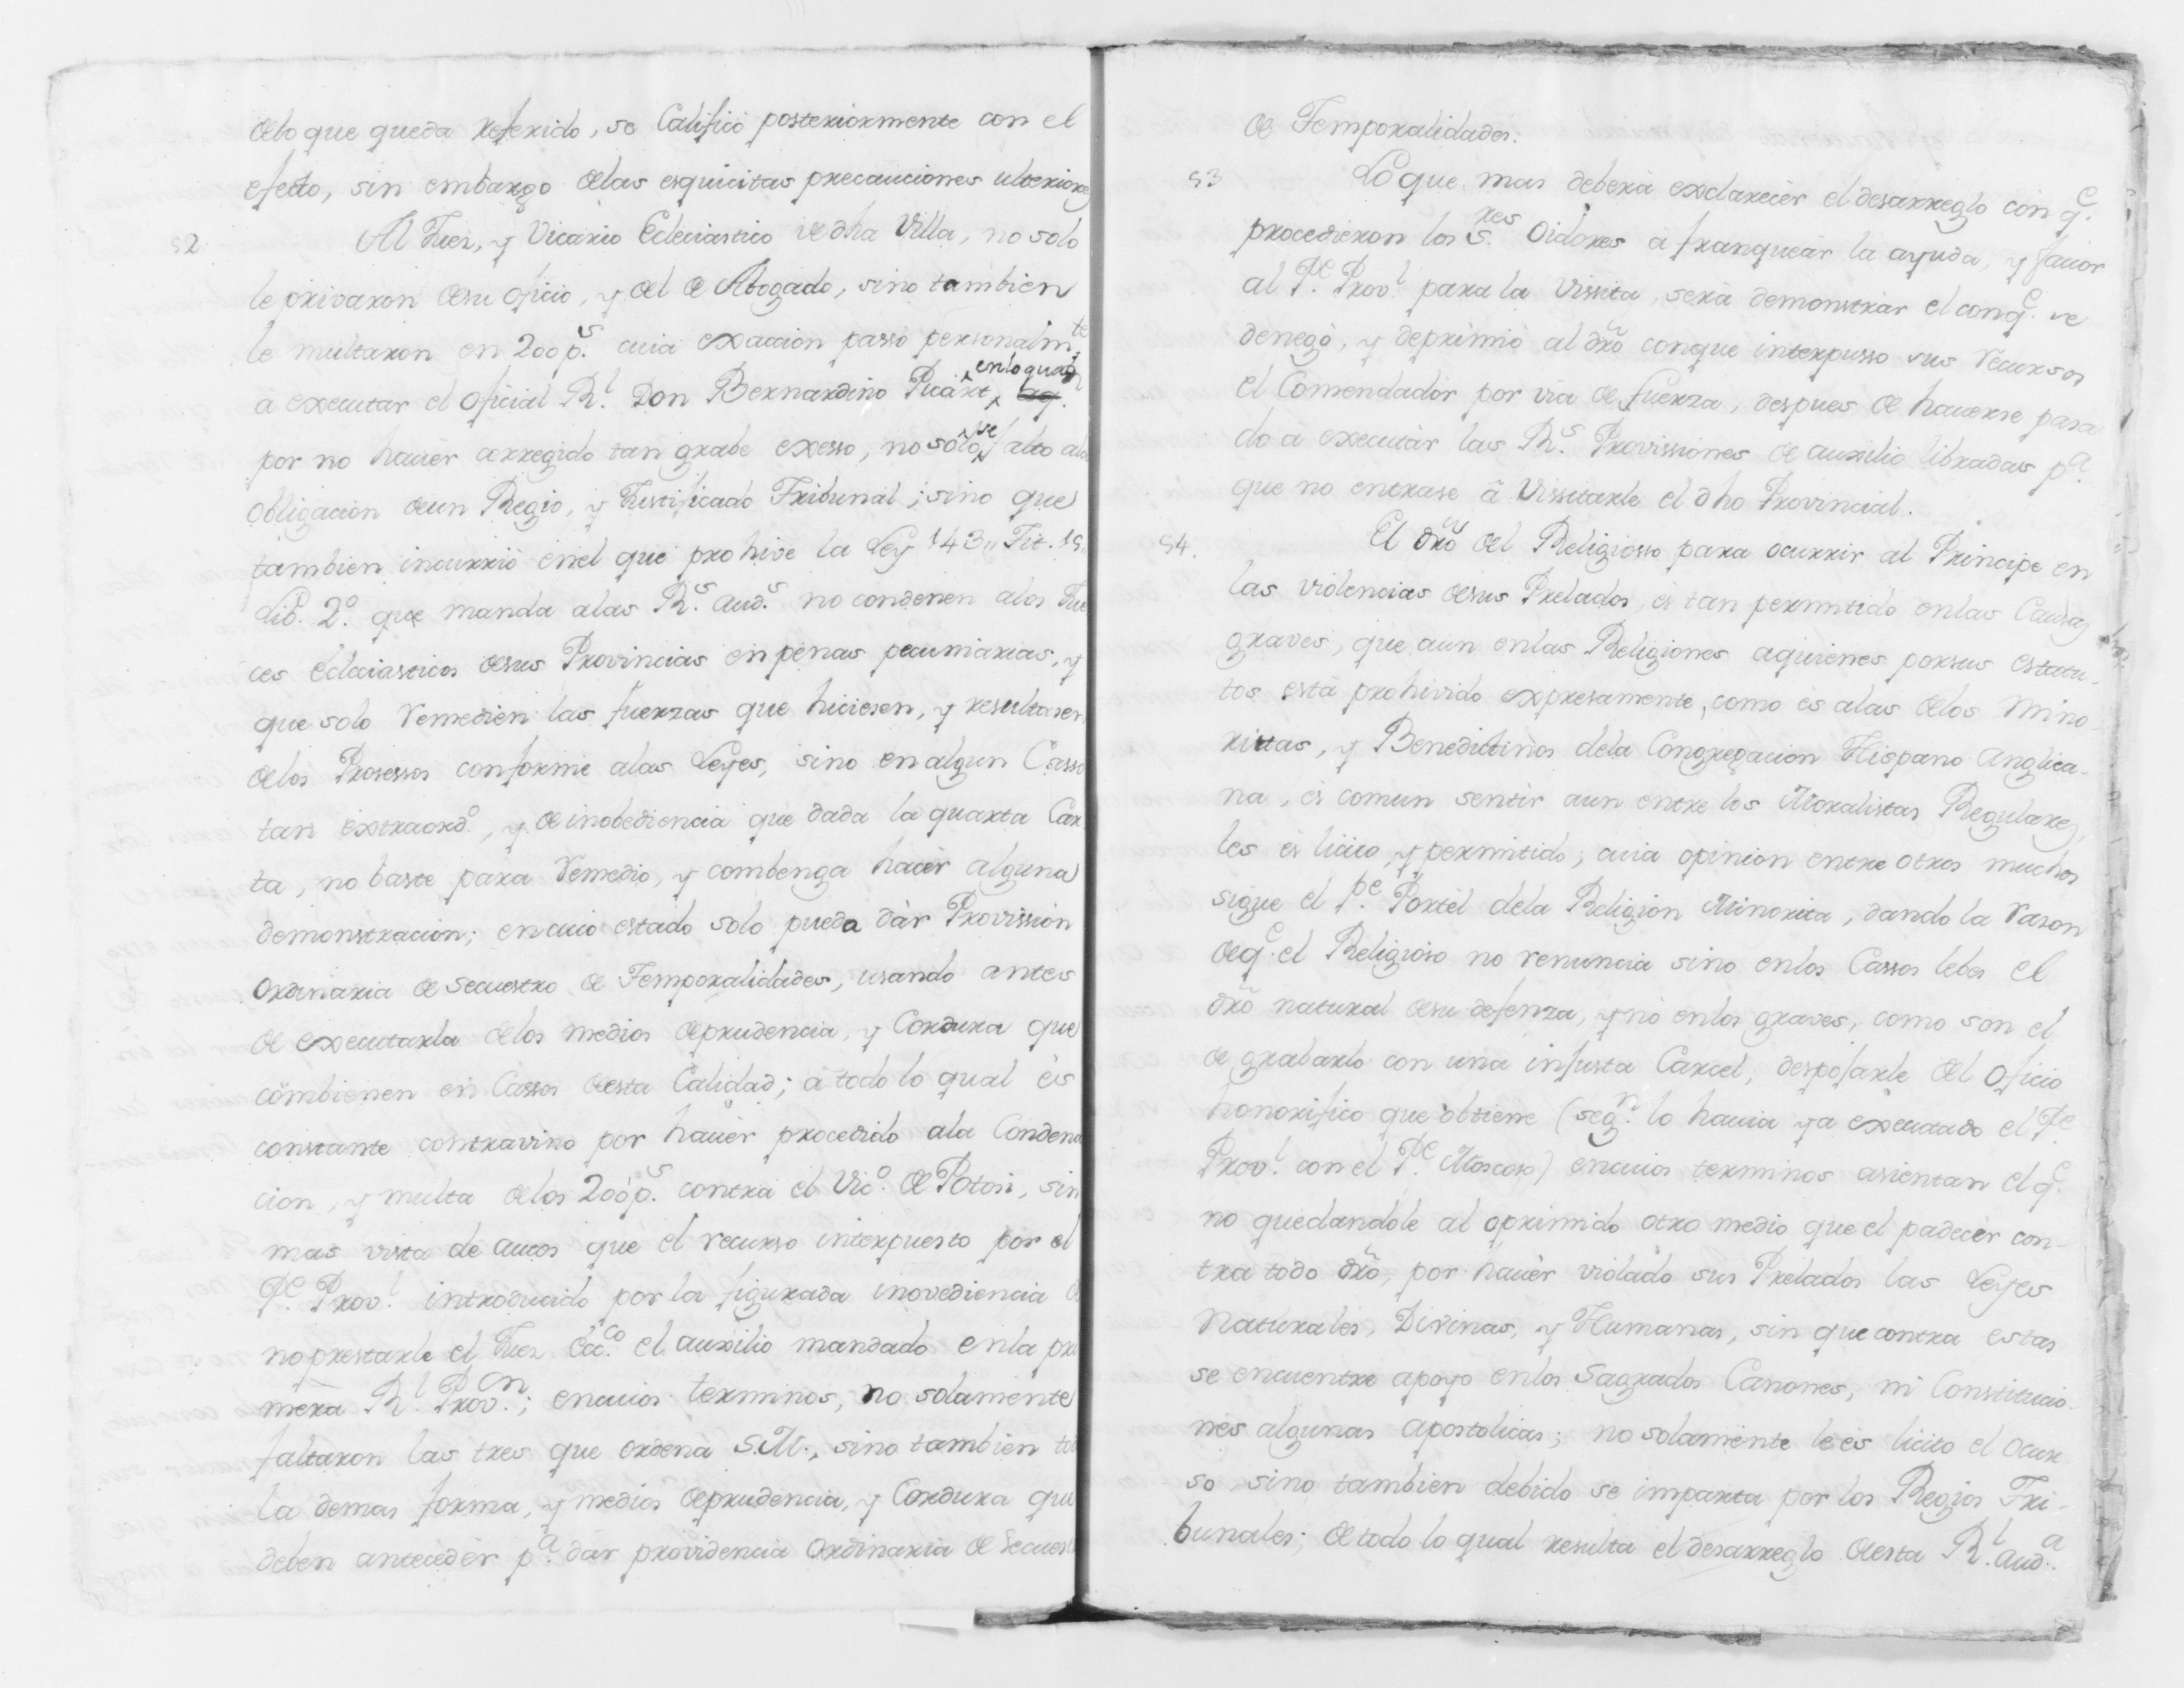 delo que queda referido, se Calificó posteriormente con el
efecto, sin embargo delas esquicitas precauciones ulteriore
52 Al Juez, y Vicario Ecleciastico de dha Villa, no solo
le privaron desu oficio, y del de Abogado, sino tambien
le multaron en 200 p.s cuia exaccion passó personalm.te
á executar el oficial R.l Don Bernardino enlo qual
por no hauèr corregido tan grabe exesso, no sólo se falto ala
obligacion deun Regio, y Justificado Tribunal; sino que
tambien incurrió enel que prohive la Ley 143,, Tit. 15,,
Lib. 2.o que manda alas R.s Aud.s no condenen alos Jue
ces ecleciasticos desus Provincias en penas pecuniarias, y
que solo remedien las fuerzas que hiciesen, y resultasen
delos Prosessos conforme alas Leyes, sino en algun Casso
tan extraord.o, y de inobediencia que dada la quarta Car
ta, no baste para remedio, y combenga hacèr alguna
demonstracion; encuio estado solo pueda dàr Provission
ordinaria de secuestro de Temporalidades, usando antes
de executarla delos medios deprudencia, y Cordura que
combienen en Cassos desta Calidad; á todo lo qual ès
constante contravino por hauèr procedido ala Condena
cion, y multa delos 200 p.s contra el Vic.o de Potosi, sin
mas vista de autos que el recurso interpuesto por el
P.e Prov.l introducido por la figurada inovediencia de
no prestarle el Juez Ecc.co el auxilio mandado enla pri
mera R.l Prov.on; encuios terminos, no solamente
faltaron las tres que ordena S.M., sino tambien to
la demas forma, y medios deprudencia, y Cordura que
deben antecedèr p.a dar providencia ordinaria de secuest
de Temporalidades.
53 Lo que mas deberá exclarecèr el desarreglo con q.e
procedieron los S.res Oidores á franqueàr la ayuda, y fauor
al P.e Prov.l para la Vissita, será demonstràr el con q.e se
denegó, y deprimió al dr̃o conque interpusso sus recursos
el Comendadòr por via de fuerza, despues de hauerse pasa
do á executàr las R.s Provissiones de auxilio libradas p.a
que no entrase á Vissitarle el dho Provincial.
54. El dr̃o del Religiosso para ocurrir al Principe en
las violencias desus Prelados, és tan permitido enlas Causas
graves, que aun enlas Religiones aquienes porsus estatu-
tos está prohivido expresamente, como és alas delos Mino-
ristas, y Benedictinos dela Congregacion Hispano Anglica-
na, és comun sentìr aun entre los Moralistas Regulares,
les és licito, y permitido; cuia opinion entre otros muchos
sigue el P.e Portèl dela Religion Minorita, dando la rason
deq.e el Religioso no renuncia sino enlos Cassos lebes el
dr̃o natural desu defenza, y nó enlos graves, como son el
de grabarlo con una injusta Carcel, despojarle del oficio
honorifico que obtiene (seg.n lo hauia ya executado el P.e
Prov.l con el P.e Moscoso) encuios terminos asientan el q.e
no quedandole al oprimido otro medio que el padecèr con-
tra todo dr̃o, por hauèr violado sus Prelados las Leyes
Naturales, Divinas, y Humanas, sin que contra estas
se encuentre apoyo enlos Sagrados Canones, ni Constitucio-
nes algunas apostolicas; no solamente le és licito el ocur-
so, sino tambien debido se imparta por los Regios Tri-
bunales; de todo lo qual resulta el desarreglo desta R.l Aud.a